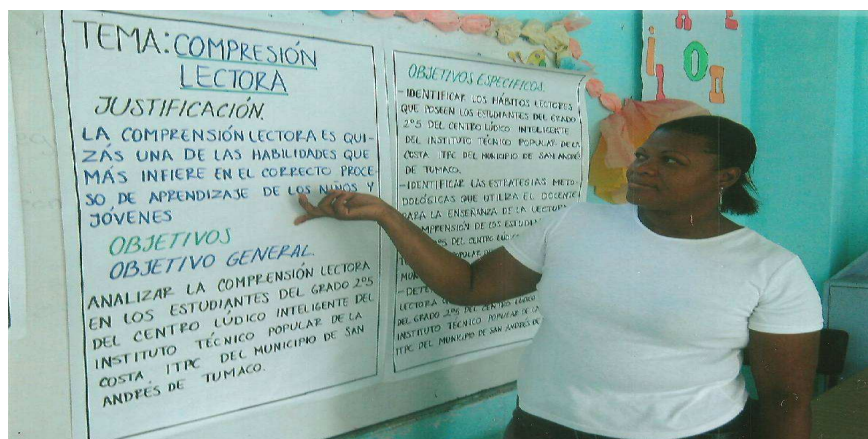 TEMA: COMPRESIÓN
LECTORA
JUSTIFICACIÓN.
LA COMPRENSIÓN LECTORA ES QUI-
ZÁS UNA DE LAS HABILIDADES QUE
MÁS INFIERE EN EL CORRECTO PROCE-
SO DE APRENDIZAJE DE LOS NIÑOS Y
JÓVENES
OBJETIVOS
OBJETIVO GENERAL.
ANALIZAR LA COMPRENSIÓN LECTORA
EN LOS ESTUDIANTES DEL GRADO 2º5
DEL CENTRO LÚDICO INTELIGENTE DEL
INSTITUTO TÉCNICO POPULAR DE LA
COSTA ITPC DEL MUNICIPIO DE SAN
ANDRÉS DE TUMACO.
OBJETIVOS ESPECIFICOS.
- IDENTIFICAR LOS HÁBITOS LECTORES
QUE POSEEN LOS ESTUDIANTES DEL GRADO
2º5 DEL CENTRO LÚDICO INTELIGENTE
DEL INSTITUTO TÉCNICO POPULAR DE LA
COSTA ITPC DEL MUNICIPIO DE SAN ANDRÉS
DE TUMACO.
- IDENTIFICAR LAS ESTRATEGIAS METO-
DOLÓGICAS QUE UTILIZA EL DOCENTE
PARA LA ENSEÑANZA DE LA LECTURA
COMPRENSIÓN DE LOS
DEL CENTRO LÚDICO
POPULAR
LECTORA
DEL GRADO 2º5 DEL CENTRO LÚDICO
INSTITUTO TÉCNICO POPULAR DE LA
ITPC DEL MUNICIPIO DE SAN ANDRÉS DE